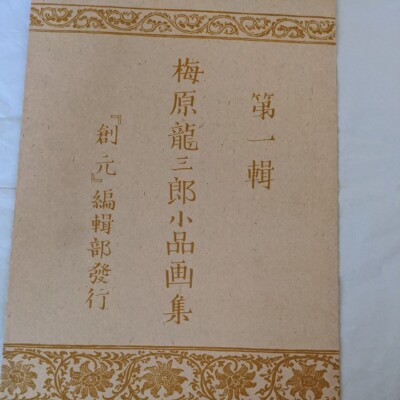 第一輯
梅原龍三郎小品画集
『創元』編輯部發行